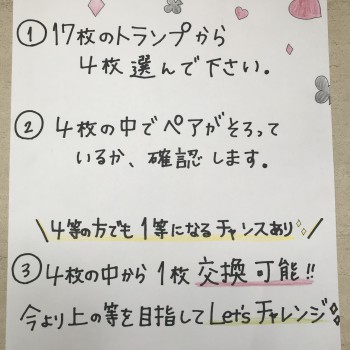 ① 17枚のトランプから
4枚選んで下さい。
② 4枚の中でペアがそろって
いるか、確認します。
\4等の方でも1等になるチャンスあり/
③ 4枚の中から1枚交換可能!!
今より上の等を目指してLet'sチャレンジ